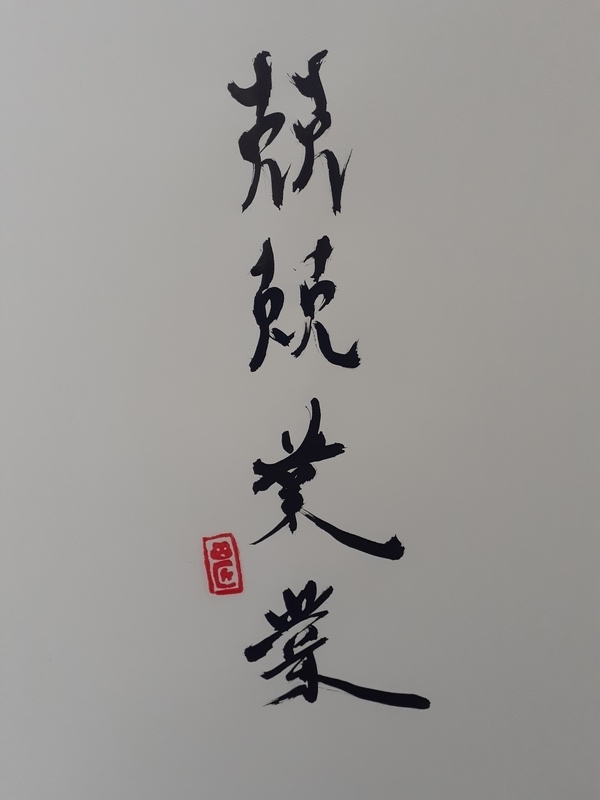 兢兢業業